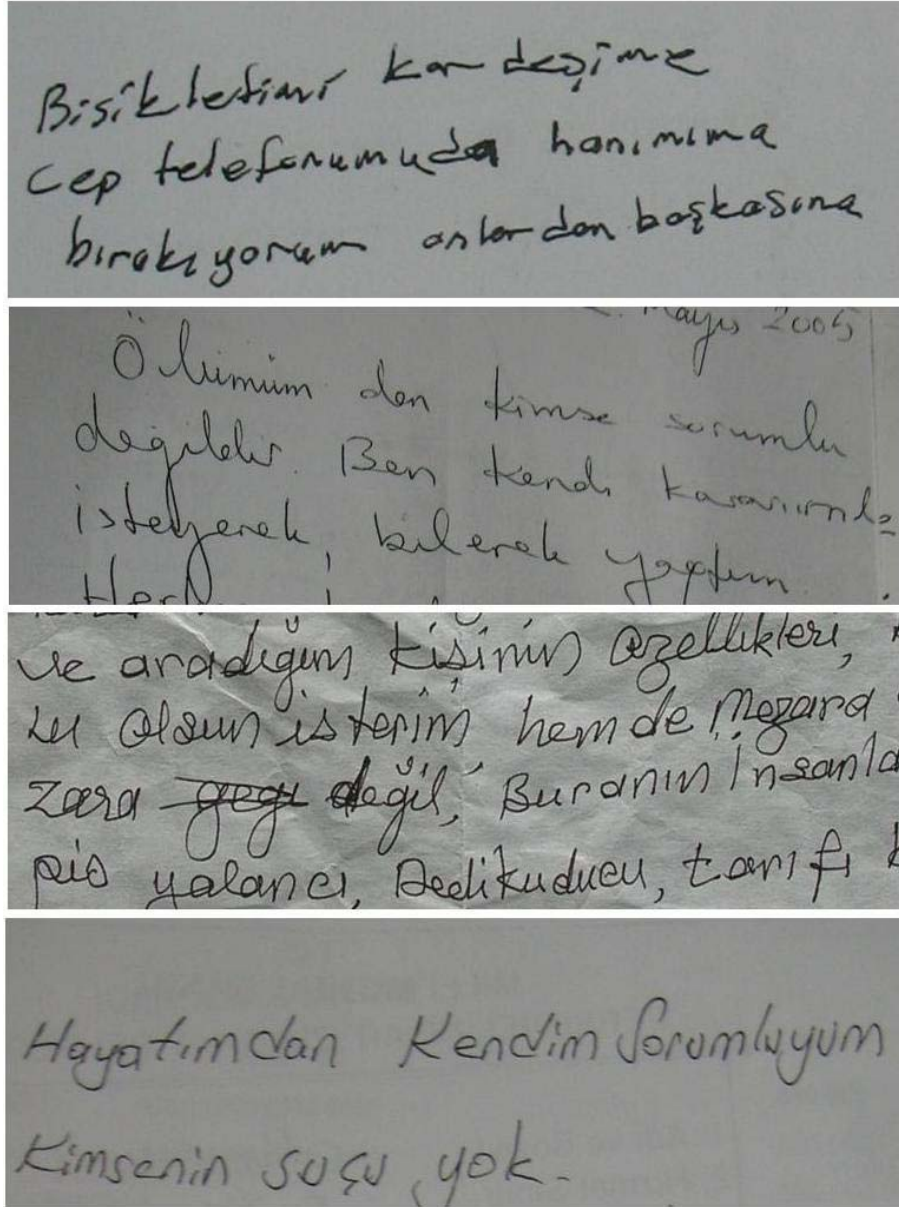 Bisikletimi kardeşime
Cep telefonumuda hanımıma
bırakıyorum onlardan başkasına
Mayıs 2005
Ölümüm den kimse sorumlu
değildir. Ben kendi kararımla
isteyerek, bilerek yaptım
ve aradığım kişinin özellikleri,
lu olsun isterim hemde Mezara
zara değil, Buranın İnsanla
pis yalancı, Dedikuducu, tarifi
Hayatımdan Kendim Sorumluyum
Kimsenin suçu yok.